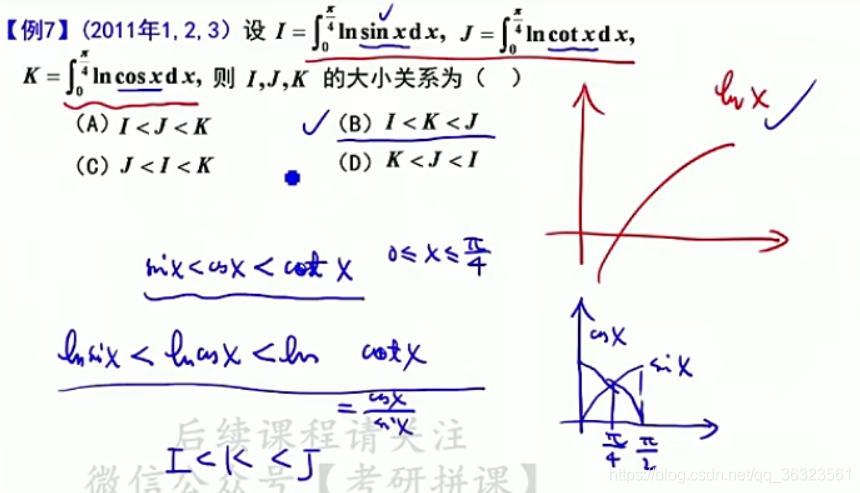 【例7】(2011年1,2,3) 设 I = ∫₀^{π/4} ln sin x d x, J = ∫₀^{π/4} ln cot x d x,
K = ∫₀^{π/4} ln cos x d x, 则 I, J, K 的大小关系为 ( )
(A) I < J < K ✓ (B) I < K < J
(C) J < I < K (D) K < J < I
ln x ✓
sin x < cos x < cot x 0 ≤ x ≤ π/4
cos x
sin x
ln sin x < ln cos x < ln cot x
= cos x / sin x
π/4 π/2
I < K < J
后续课程请关注
微信公众号【考研拼课】
https://blog.csdn.net/qq_36323561